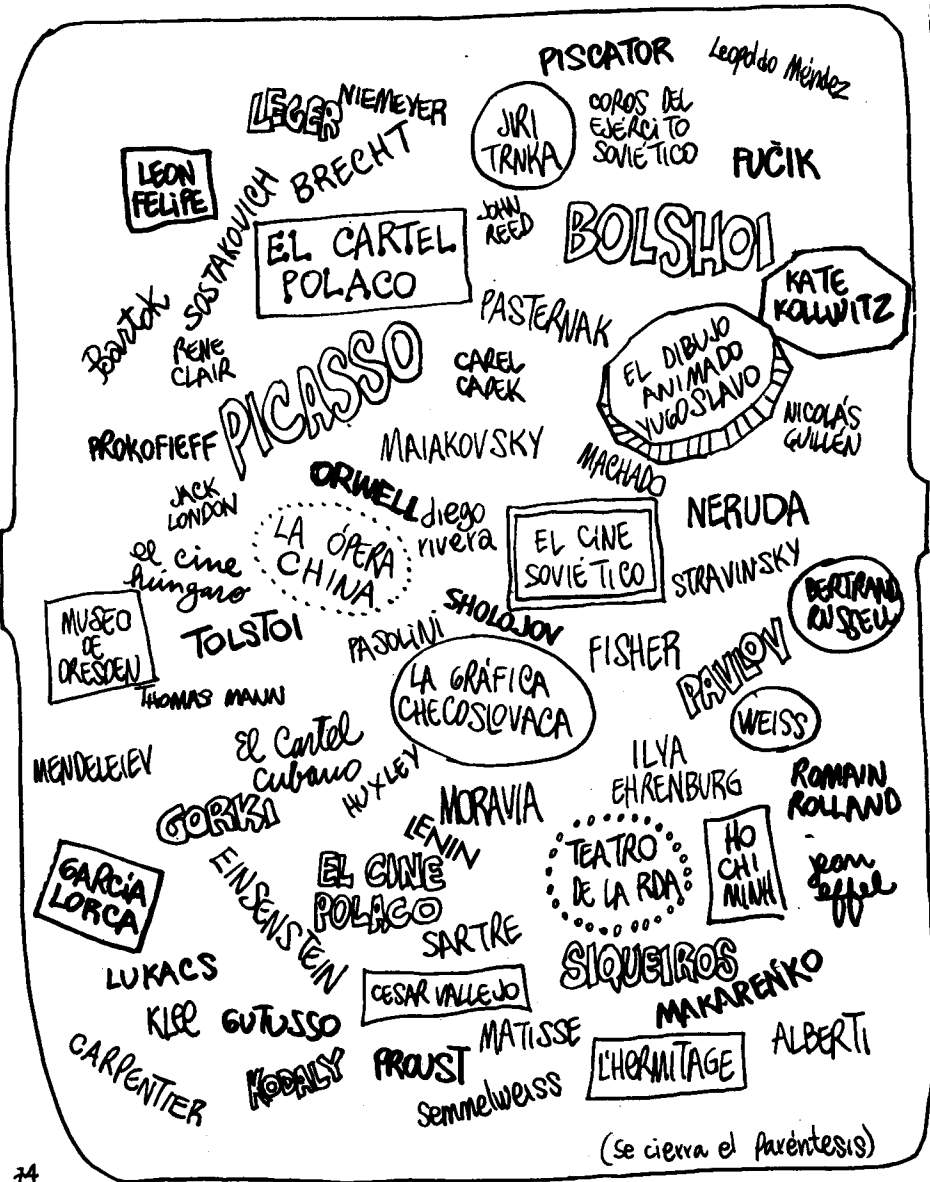 PISCATOR
Leopoldo Méndez
LEGER
NIEMEYER
JIRI
TRNKA
COROS DEL
EJÉRCITO
SOVIÉTICO
FUČIK
LEON
FELIPE
SOSTAKOVICH
BRECHT
JOHN
REED
BOLSHOI
EL CARTEL
POLACO
KATE
KOLLWITZ
Bartok
RENE
CLAIR
PICASSO
PASTERNAK
CAREL
CAPEK
EL DIBUJO
ANIMADO
YUGOSLAVO
NICOLÁS
GUILLÉN
PROKOFIEFF
MAIAKOVSKY
MACHADO
JACK
LONDON
ORWELL
diego
rivera
NERUDA
el cine
húngaro
LA ÓPERA
CHINA
EL CINE
SOVIÉTICO
STRAVINSKY
BERTRAND
RUSSELL
MUSEO
DE
DRESDEN
TOLSTOI
PASOLINI
SHOLOJOV
FISHER
PAVLOV
THOMAS MANN
LA GRÁFICA
CHECOSLOVACA
WEISS
MENDELEIEV
El Cartel
Cubano
HUXLEY
ILYA
EHRENBURG
ROMAIN
ROLLAND
GORKI
MORAVIA
LENIN
GARCÍA
LORCA
EINSENSTEIN
EL CINE
POLACO
TEATRO
DE LA RDA
HO
CHI
MINH
jean
effel
SARTRE
LUKACS
CESAR VALLEJO
SIQUEIROS
MAKARENKO
KLEE
GUTUSSO
MATISSE
ALBERTI
CARPENTIER
KODALY
PROUST
Semmelweiss
L'HERMITAGE
(se cierra el paréntesis)
74